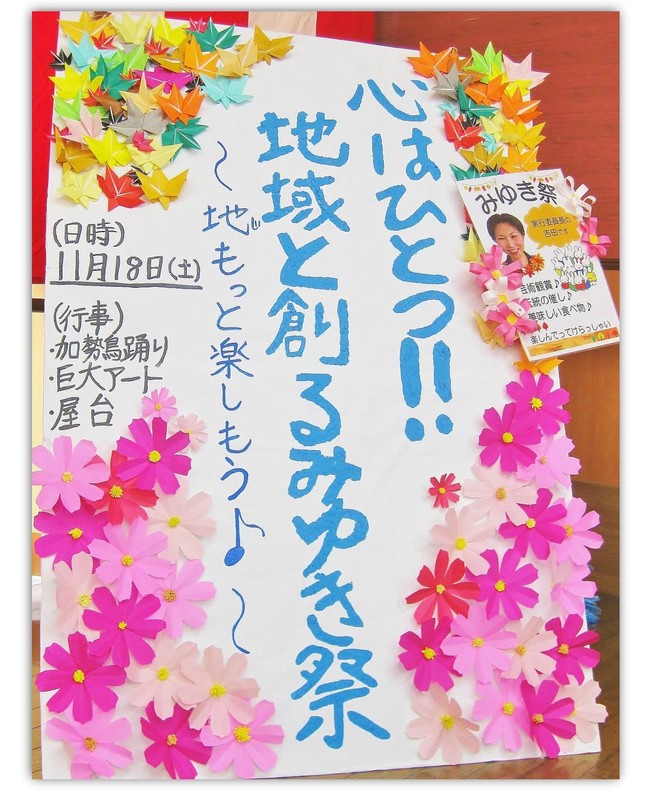 心はひとつ!!
地域と創るみゆき祭
~地もっと楽しもう♪~
(日時)
11月18日(土)
(行事)
・加勢鳥踊り
・巨大アート
・屋台
みゆき祭
実行委員長の
吉田です
芸術観賞♪
伝統の催し♪
美味しい食べ物♪
楽しんでってけらっしゃい